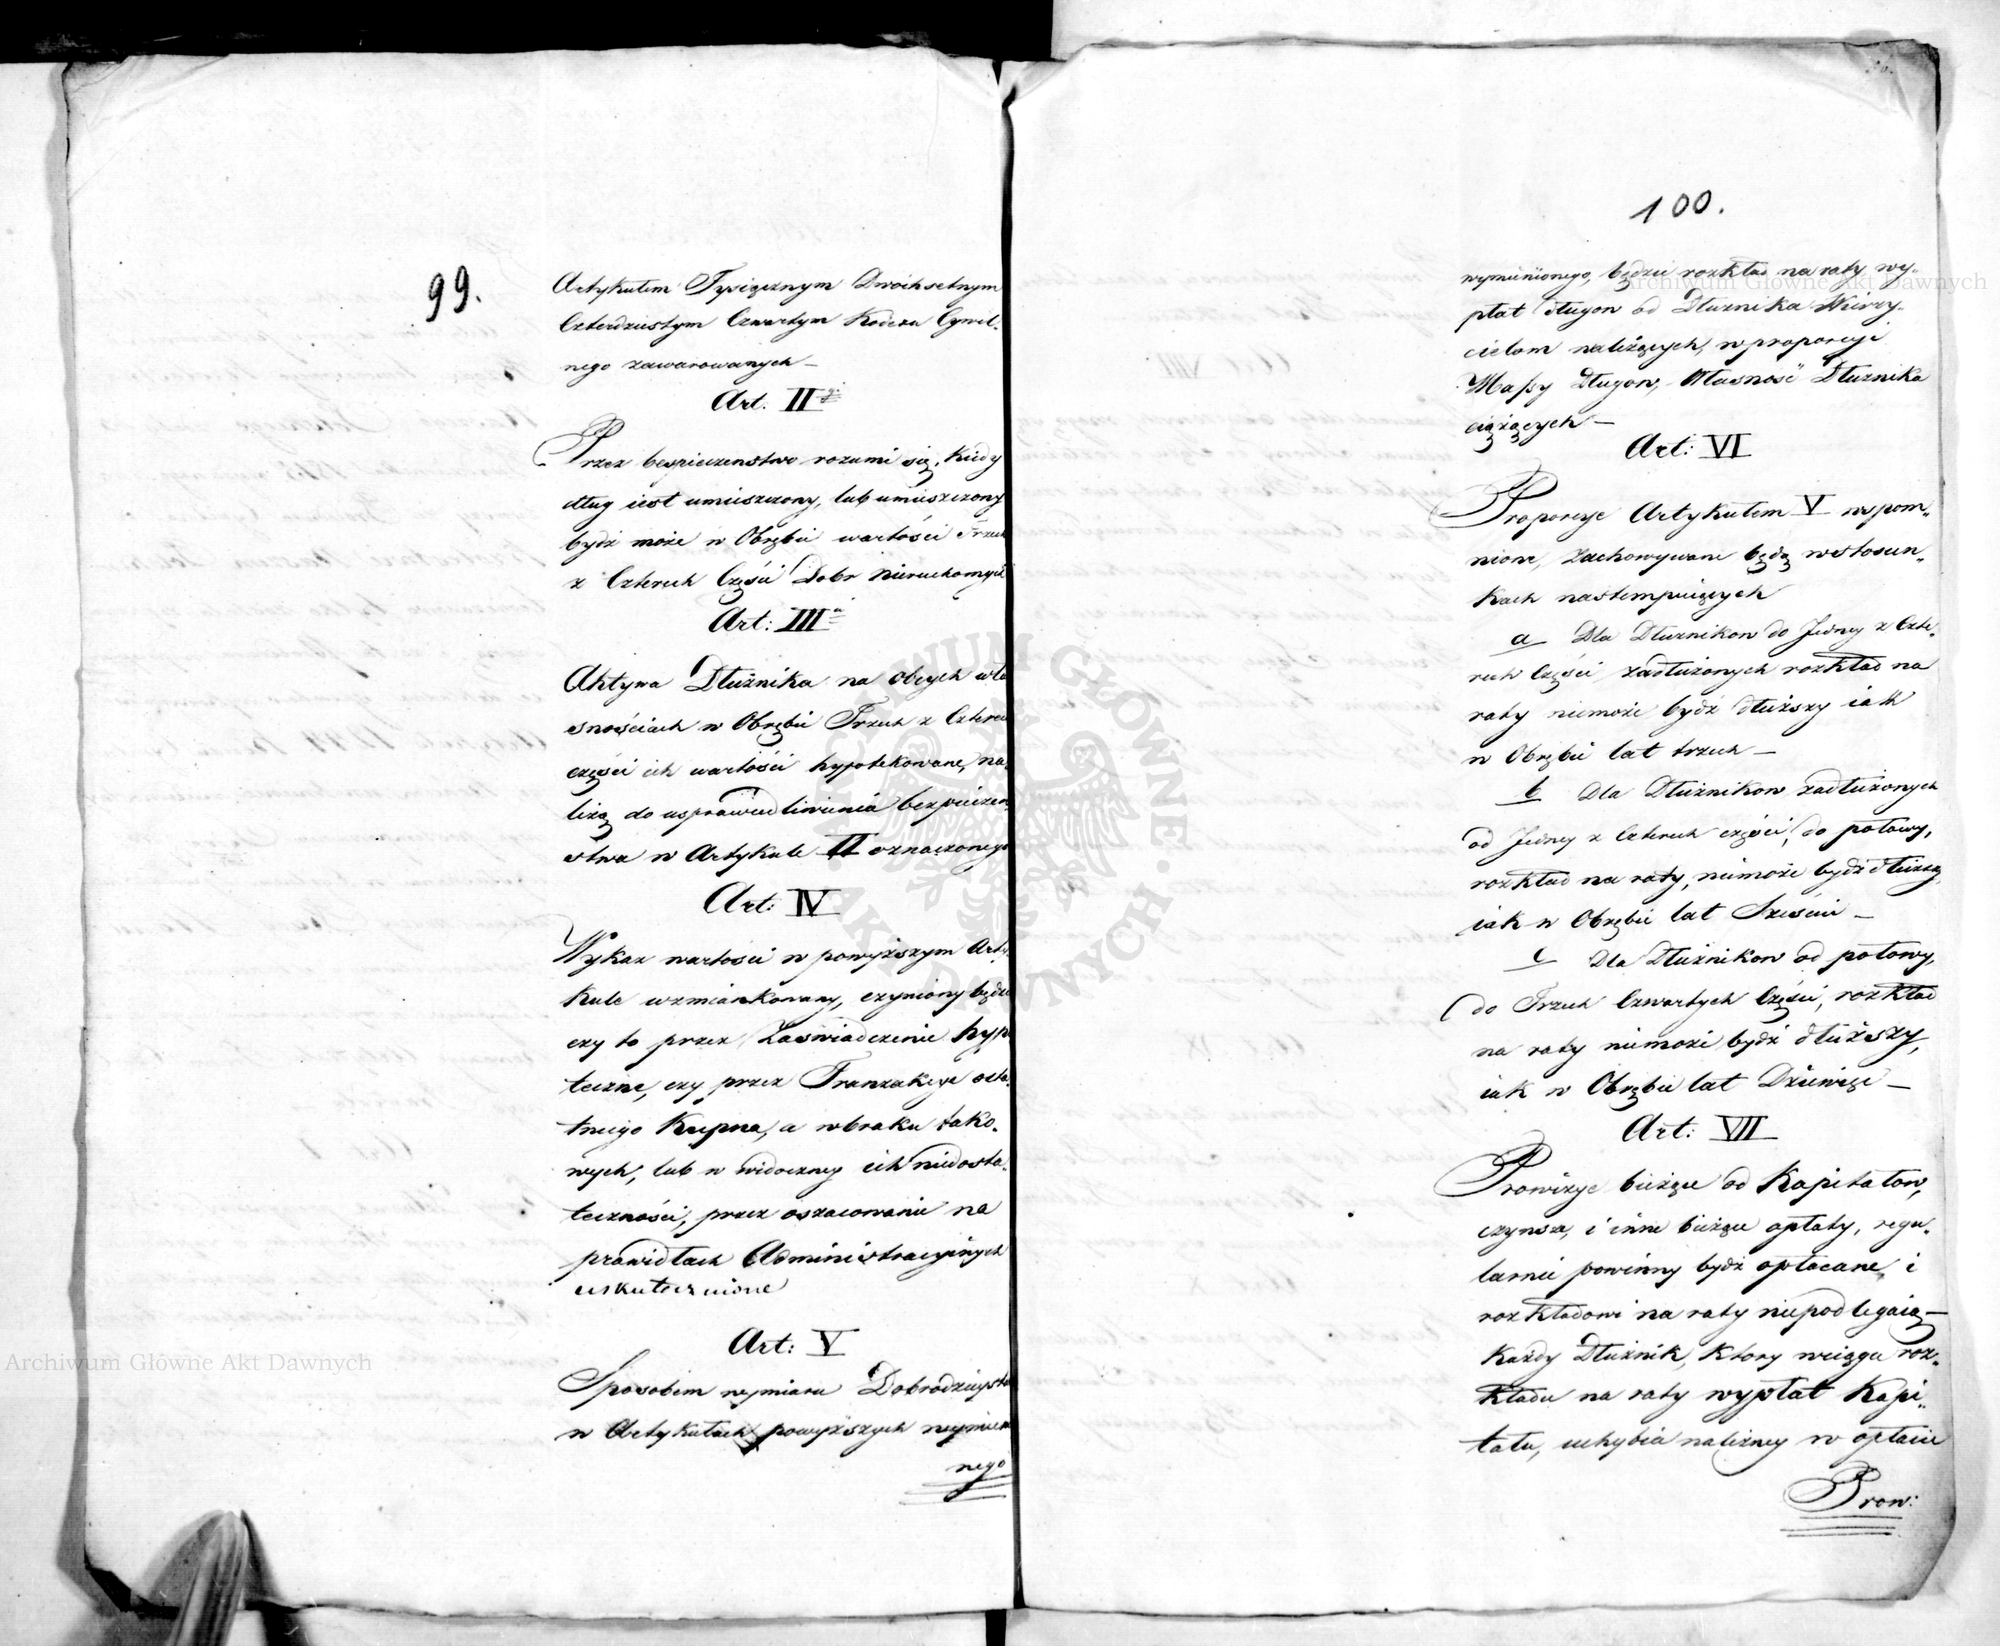 99.
Artykułem Tysiącznym Dwóchsetnym
Czterdziestym Czwartym Kodexu Cywil-
nego zawarowanych —
Art. II
Przez bespieczenstwo rozumi się, kiedy
dług iest umieszczony, lub umieszczony
bydź może w Obrębie wartości Trzech
z Czterech Części Dobr Nieruchomych
Art: III
Aktywa Dłużnika na obcych wła
snościach w Obrębie Trzech z Czterech
części ich wartości hypotekowane, na-
leżą do usprawiedliwienia bezpieczeń
stwa w Artykule II oznaczonego
Art: IV
Wykaz wartości w powyższym Arty-
kule wzmiankowany, czyniony będzie
czy to przez Zaświadczenie hypo
teczne, czy przez Tranzakcye osta-
tniego Kupna, a w braku tako-
wych, lub w widoczney ich niedosta-
teczności, przez oszacowanie na
prawidłach Administracyinych
uskutecznione
Art: V
Sposobem wymiaru Dobrodzieystwa
w Artykułach powyższych wymien
nego
100.
wymienionego, będzie rozkład na raty wy-
płat długow od Dłużnika Wierzy-
cielom należących, w proporcyi
Massy Długow, Własność Dłużnika
ciążących —
Art: VI
Proporcye Artykułem V wspom-
nione, zachowywane będą w stosun-
kach nastempuiących
a Dla Dłużnikow do Jedney z Czte-
rech Części zadłużonych rozkład na
raty niemoże bydź dłuższy iak
w Obrębie lat trzech —
b Dla Dłużnikow zadłużonych
od Jedney z Czterech części, do połowy,
rozkład na raty, niemoże bydź dłuższy,
iak w Obrębie lat Sześciu —
c Dla Dłużnikow od połowy,
do Trzech Czwartych Części, rozkład
na raty niemoże bydź dłuższy,
iak w Obrębie lat Dziewięć —
Art: VII
Prowizye bieżące od Kapitałow,
czynsze, i inne bieżące opłaty, regu-
larnie powinny bydź opłacane, i
rozkładowi na raty niepodlegaią —
Każdy Dłużnik, ktory w ciągu roz-
kładu na raty wypłat Kapi-
tału, uchybia należney w opłacie
Prow:
Archiwum Główne Akt Dawnych
Archiwum Główne Akt Dawnych
ARCHIWUM GŁÓWNE AKT DAWNYCH